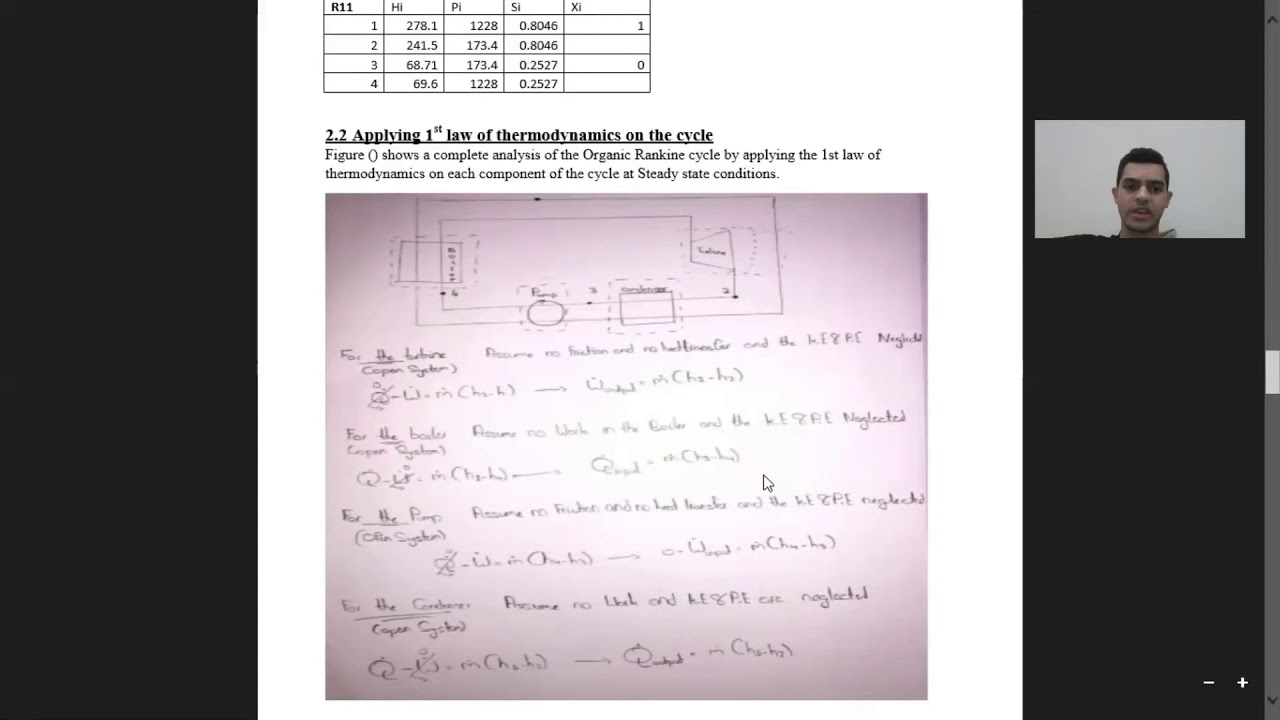 R11 Hi Pi Si Xi
1 278.1 1228 0.8046 1
2 241.5 173.4 0.8046
3 68.71 173.4 0.2527 0
4 69.6 1228 0.2527
2.2 Applying 1st law of thermodynamics on the cycle
Figure () shows a complete analysis of the Organic Rankine cycle by applying the 1st law of
thermodynamics on each component of the cycle at Steady state conditions.
Turbine
4 Pump 3 condenser 2
For the turbine Assume no friction and no heat transfer and the k.E & P.E Neglected
(open System)
For the boiler Assume no Work in the Boiler and the k.E & P.E Neglected
(open System)
For the Pump Assume no Friction and no heat transfer and the k.E & P.E neglected
(Open System)
For the Condenser Assume no Work and k.E & P.E are neglected
(open System)